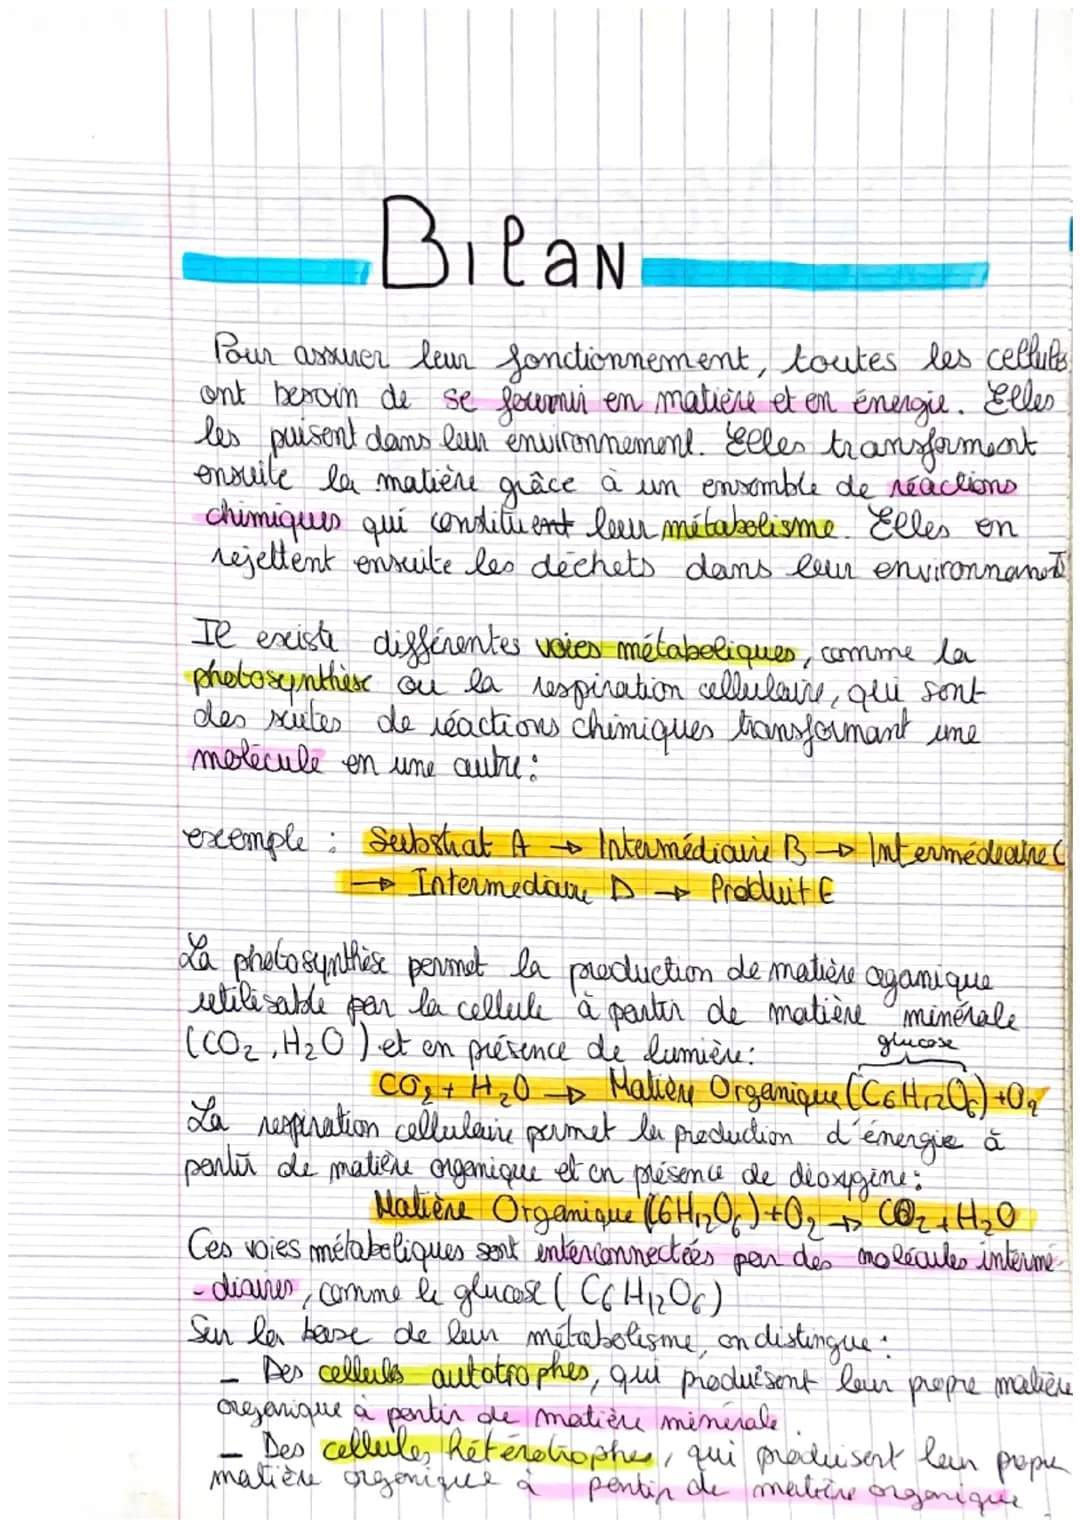 Bilan
Pour assurer leur fonctionnement, toutes les cellules
ont besoin de se fournir en matière et en énergie. Elles
les puisent dans leur environnement. Elles transforment
ensuite la matière grâce à un ensemble de réactions
chimiques qui constituent leur métabolisme. Elles en
rejettent ensuite les déchets dans leur environnement
Il existe différentes voies métaboliques, comme la
photosynthèse ou la respiration cellulaire, qui sont
des suites de réactions chimiques transformant une
molécule en une autre :
exemple : Substrat A → Intermédiaire B → Intermédeaire C
→ Intermediaire D → Produit E
La photosynthèse permet la production de matière oganique
utilisable par la cellule à partir de matière minérale
(CO₂, H₂O) et en présence de lumière :
glucose
CO₂ + H₂O → Matière Organique (C₆H₁₂O₆) + O₂
La respiration cellulaire permet la production d'énergie à
partir de matière organique et en présence de dioxygène :
Matière Organique (C₆H₁₂O₆) + O₂ → CO₂ + H₂O
Ces voies métaboliques sont interconnectées par des molécules intermé-
-diaires, comme le glucose (C₆H₁₂O₆)
Sur la base de leur métabolisme, on distingue :
- Des cellules autotrophes, qui produisent leur propre matière
organique à partir de matière minérale
- Des cellules hétérotrophes, qui produisent leur propre
matière organique à partir de matière organique.